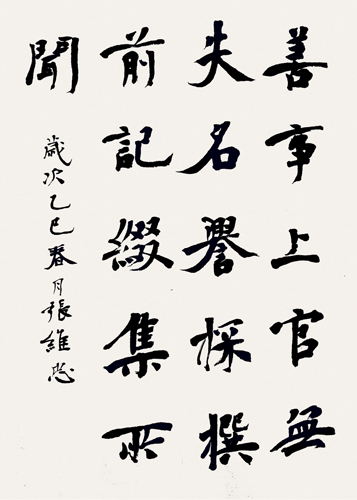 善事上官無
失名譽採撰
前記綴集所
聞
歲次乙巳春月張維忠